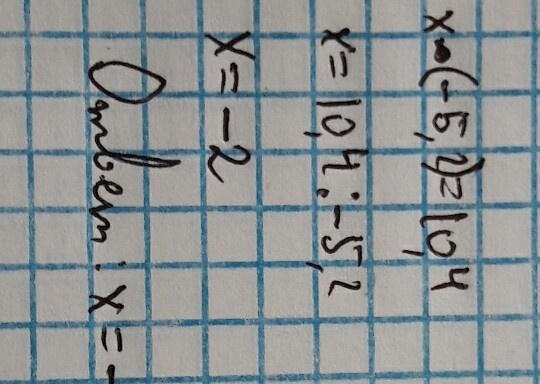 x•(-5,2)=10,4
x=10,4:-5,2
x=-2
Ответ: x=-